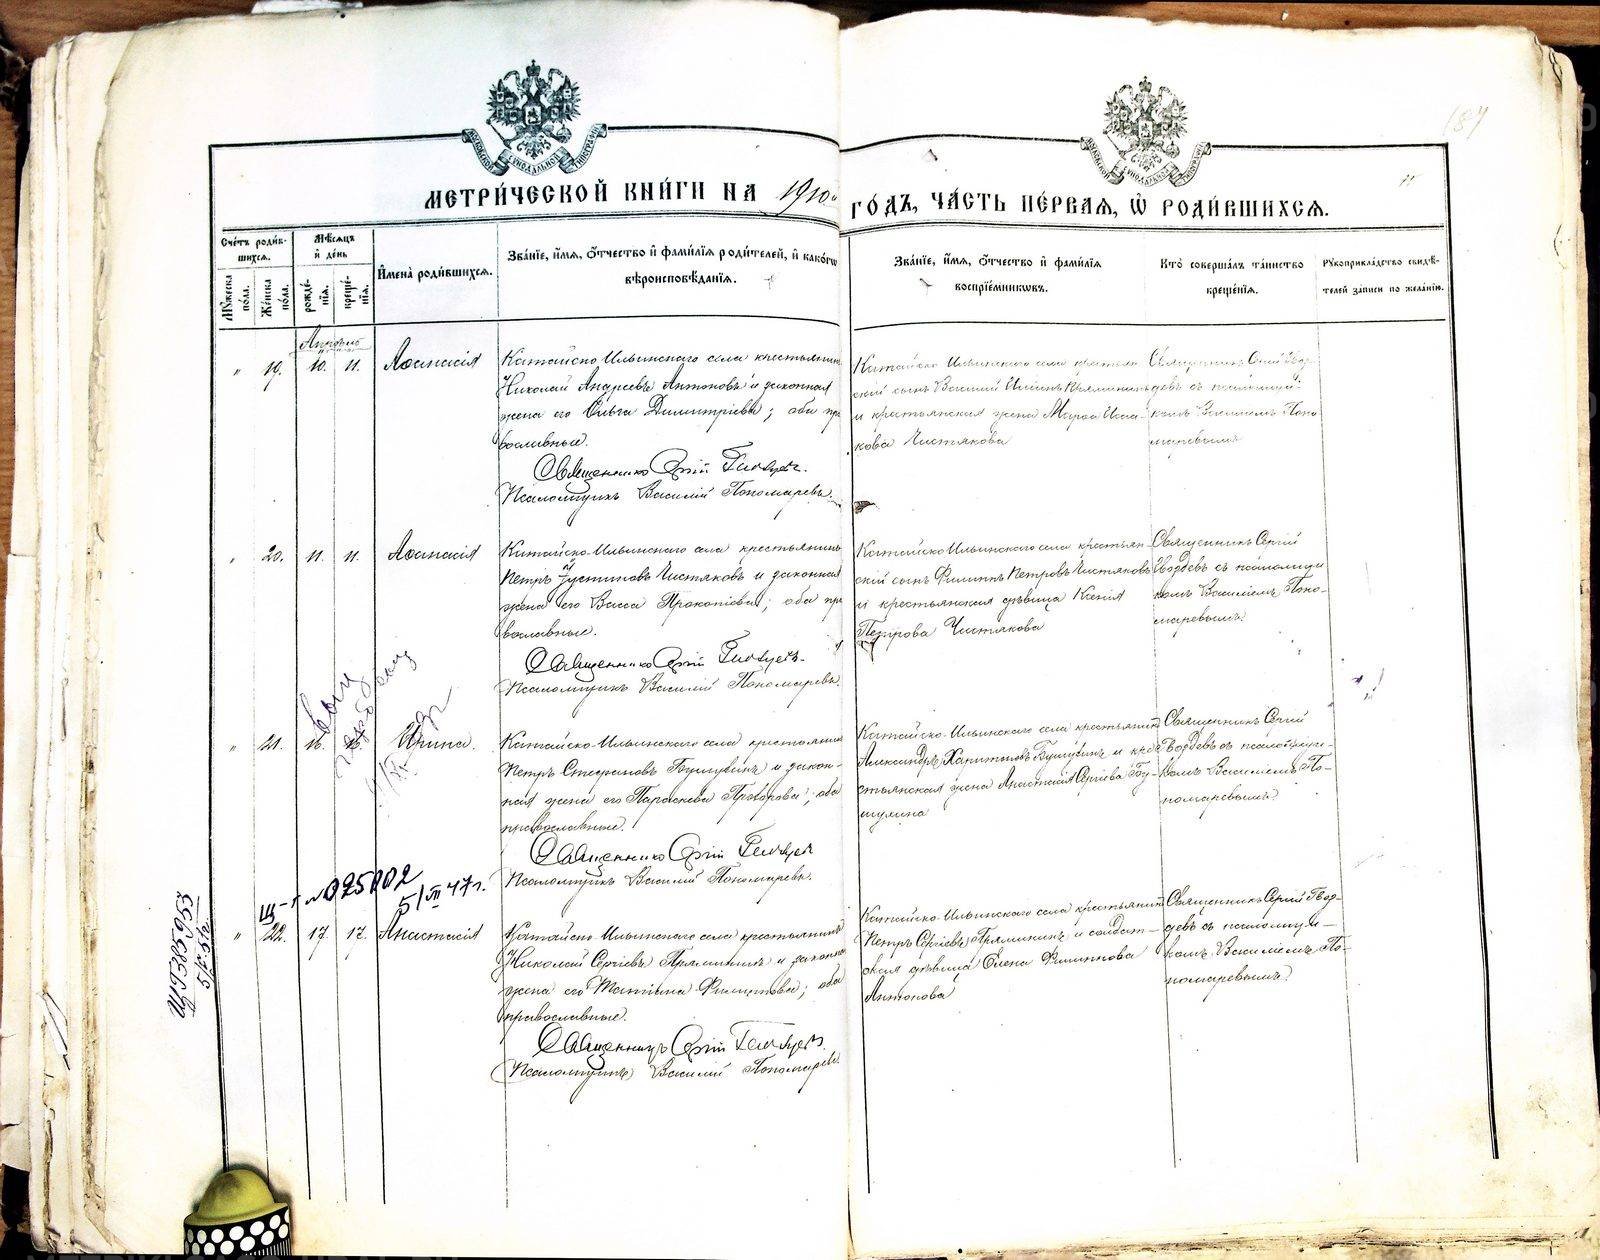 МОСКОВСКОЙ СѴНОДАЛЬНОЙ ТИПОГРАФІИ
МОСКОВСКОЙ СѴНОДАЛЬНОЙ ТИПОГРАФІИ
187
МЕТРИ́ЧЕСКОЙ КНИ́ГИ НА 1910 й ГО́ДЪ, ЧА́СТЬ ПЕ́РВАЯ, Ѽ РОДИ́ВШИХСЯ.
Сче́тъ роди́в-
шихся.
Му́жеска по́ла.
Же́нска по́ла.
Мѣ́сяцъ
и҆ де́нь
рожде́-
нія.
креще́-
нія.
И҆мена̀ роди́вшихся.
Зва́ніе, и҆́мя, ѻ҆́тчество и҆ фами́лія роди́телей, и҆ како́гѡ
вѣроисповѣ́данія.
Зва́ніе, и҆́мя, ѻ҆́тчество и҆ фами́лія
воспріе́мниковъ.
Кто̀ соверша́лъ та́инство
креще́нія.
Рукоприкла́дство свидѣ́-
телей за́писи по жела́нію.
Апрѣль
" 19. 10. 11. Аѳанасія
Китайско-Ильинскаго села крестьянинъ
Николай Андреевъ Антоновъ и законная
жена его Ольга Димитріева; оба пра
вославные.
Священникъ Сергій Гвоздевъ.
Псаломщикъ Василій Пономаревъ.
Китайско-Ильинскаго села крестьян
скій сынъ Василій
и крестьянская жена Марѳа Исаа-
кова Чистякова
Священникъ Сергій Гвоз-
девъ съ псаломщи-
комъ Василіемъ Поно-
маревымъ
" 20. 11. 11. Аѳанасія
Китайско-Ильинскаго села крестьянинъ
Петръ Іустиновъ Чистяковъ и законная
жена его Васса Прокопіева; оба пра
вославные.
Священникъ Сергій Гвоздевъ.
Псаломщикъ Василій Пономаревъ.
Китайско-Ильинскаго села крестьян-
скій сынъ Филиппъ Петровъ Чистяковъ
и крестьянская дѣвица Ксенія
Петрова Чистякова
Священникъ Сергій
Гвоздевъ съ псаломщи
комъ Василіемъ Поно-
маревымъ.
" 21. 16. 16. Ирина.
Китайско-Ильинскаго села крестьянинъ
Петръ Стефановъ Бушуевъ и закон-
ная жена его Параскева Прохорова; оба
православные.
Священникъ Сергій Гвоздевъ
Псаломщикъ Василій Пономаревъ.
Китайско-Ильинскаго села крестьянинъ
Александръ Харитоновъ и кре
стьянская жена Анастасія Сергіева Бу-
Священникъ Сергій
Гвоздевъ съ псаломщи-
комъ Василіемъ По-
номаревымъ
№ 025802
5/VII 47 г.
" 22. 17. 17. Анастасія
Китайско-Ильинскаго села крестьянинъ
Николай Сергіевъ Прямининъ и законная
жена его Татіана Филиппова; оба
православные.
Священникъ Сергій Гвоздевъ.
Псаломщикъ Василій Пономаревъ
Китайско-Ильинскаго села крестьянинъ
Петръ Сергіевъ Прямининъ и солдат-
ская дѣвица Елена Филиппова
Антонова
Священникъ Сергій Гвоз-
девъ съ псаломщи-
комъ Василіемъ По-
номаревымъ